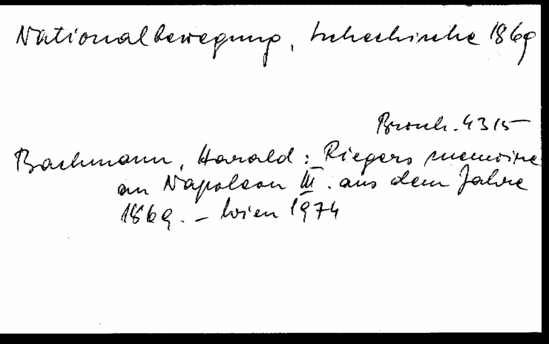 Nationalbewegung, tschechische 1869
Brosch. 4315
Bachmann, Harald: Riegers memoire
an Napoleon III. aus dem Jahre
1869. - Wien 1974